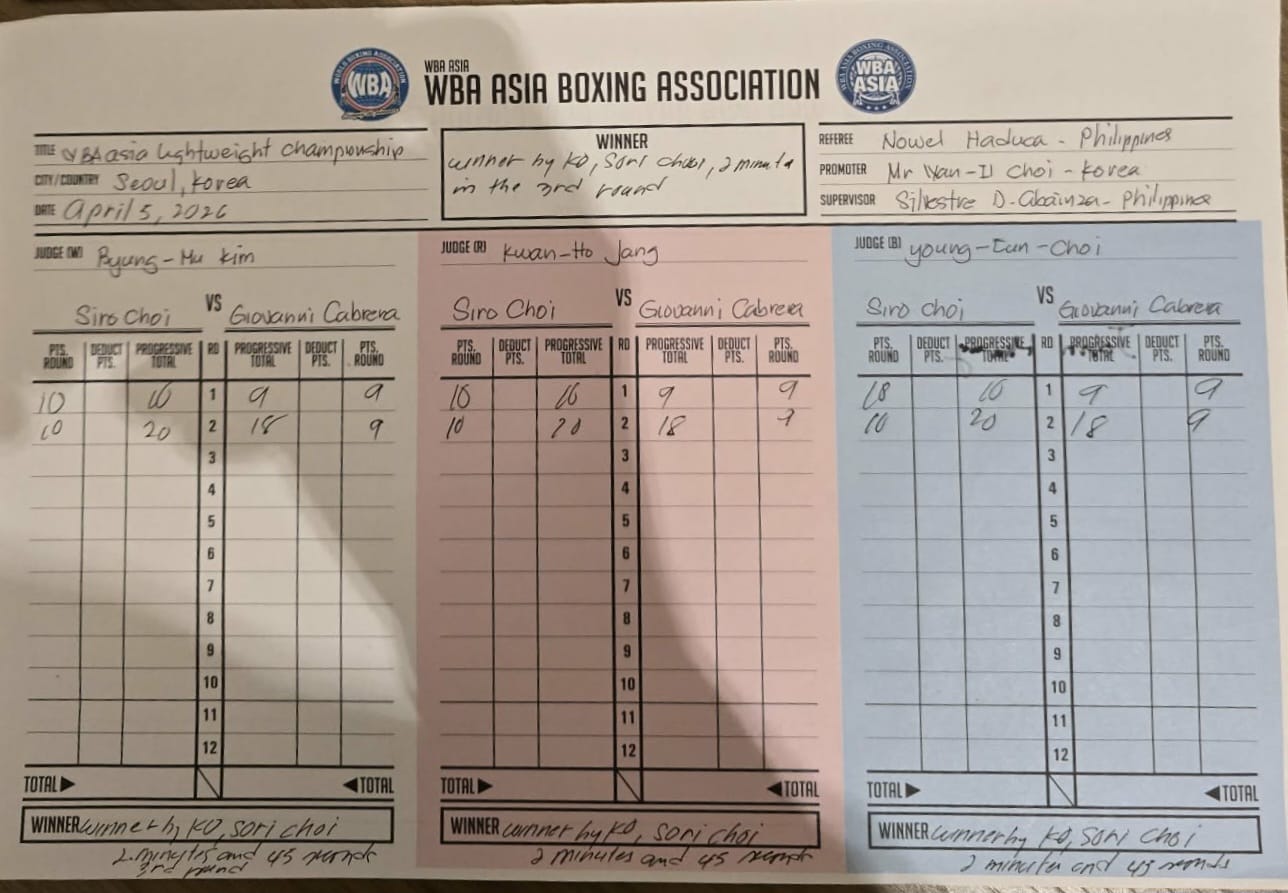 WBA ASIA
WBA ASIA BOXING ASSOCIATION
WORLD BOXING ASSOCIATION
WBA
WBA ASIA BOXING ASSOCIATION
WBA
ASIA
TITLE WBA asia lightweight championship
CITY/COUNTRY Seoul, Korea
DATE April 5, 2026
WINNER
winner by KO, Sori Choi, 2 minute
in the 3rd round
REFEREE Nowel Haduca - Philippines
PROMOTER Mr Yan-Il Choi - Korea
SUPERVISOR Silvestre D. Abainza - Philippines
JUDGE (W) Byung-Mu Kim
Siro Choi VS Giovanni Cabrera
PTS. ROUND DEDUCT PTS. PROGRESSIVE TOTAL RD PROGRESSIVE TOTAL DEDUCT PTS. PTS. ROUND
10 10 1 9 9
10 20 2 18 9
3
4
5
6
7
8
9
10
11
12
TOTAL TOTAL
WINNER winner by KO, Sori Choi
2 minutes and 45 seconds
3rd round
JUDGE (R) Kwan-Ho Jang
Siro Choi VS Giovanni Cabrera
PTS. ROUND DEDUCT PTS. PROGRESSIVE TOTAL RD PROGRESSIVE TOTAL DEDUCT PTS. PTS. ROUND
10 10 1 9 9
10 20 2 18 9
3
4
5
6
7
8
9
10
11
12
TOTAL TOTAL
WINNER winner by KO, Sori Choi
2 minutes and 45 seconds
JUDGE (B) young-Eun-Choi
Siro Choi VS Giovanni Cabrera
PTS. ROUND DEDUCT PTS. PROGRESSIVE TOTAL RD PROGRESSIVE TOTAL DEDUCT PTS. PTS. ROUND
10 10 1 9 9
10 20 2 18 9
3
4
5
6
7
8
9
10
11
12
TOTAL TOTAL
WINNER winner by KO, Sori Choi
2 minutes and 45 seconds